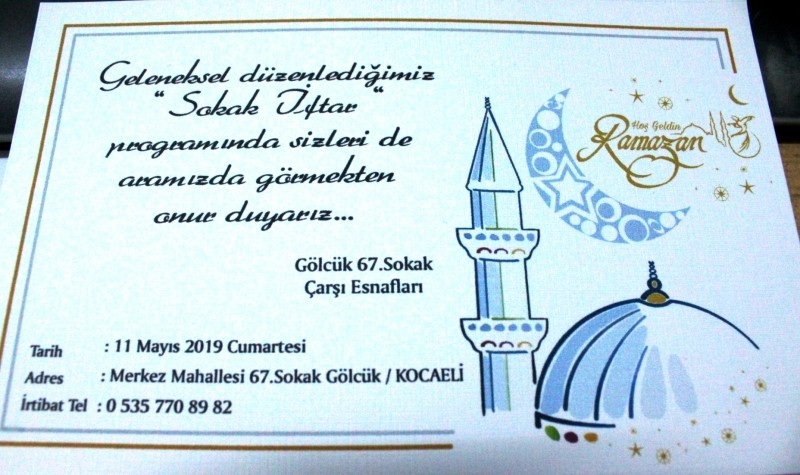 Geleneksel düzenlediğimiz
" Sokak İftar "
programında sizleri de
aramızda görmekten
onur duyarız...
Hoş Geldin
Ramazan
Gölcük 67.Sokak
Çarşı Esnafları
Tarih : 11 Mayıs 2019 Cumartesi
Adres : Merkez Mahallesi 67.Sokak Gölcük / KOCAELİ
İrtibat Tel : 0 535 770 89 82